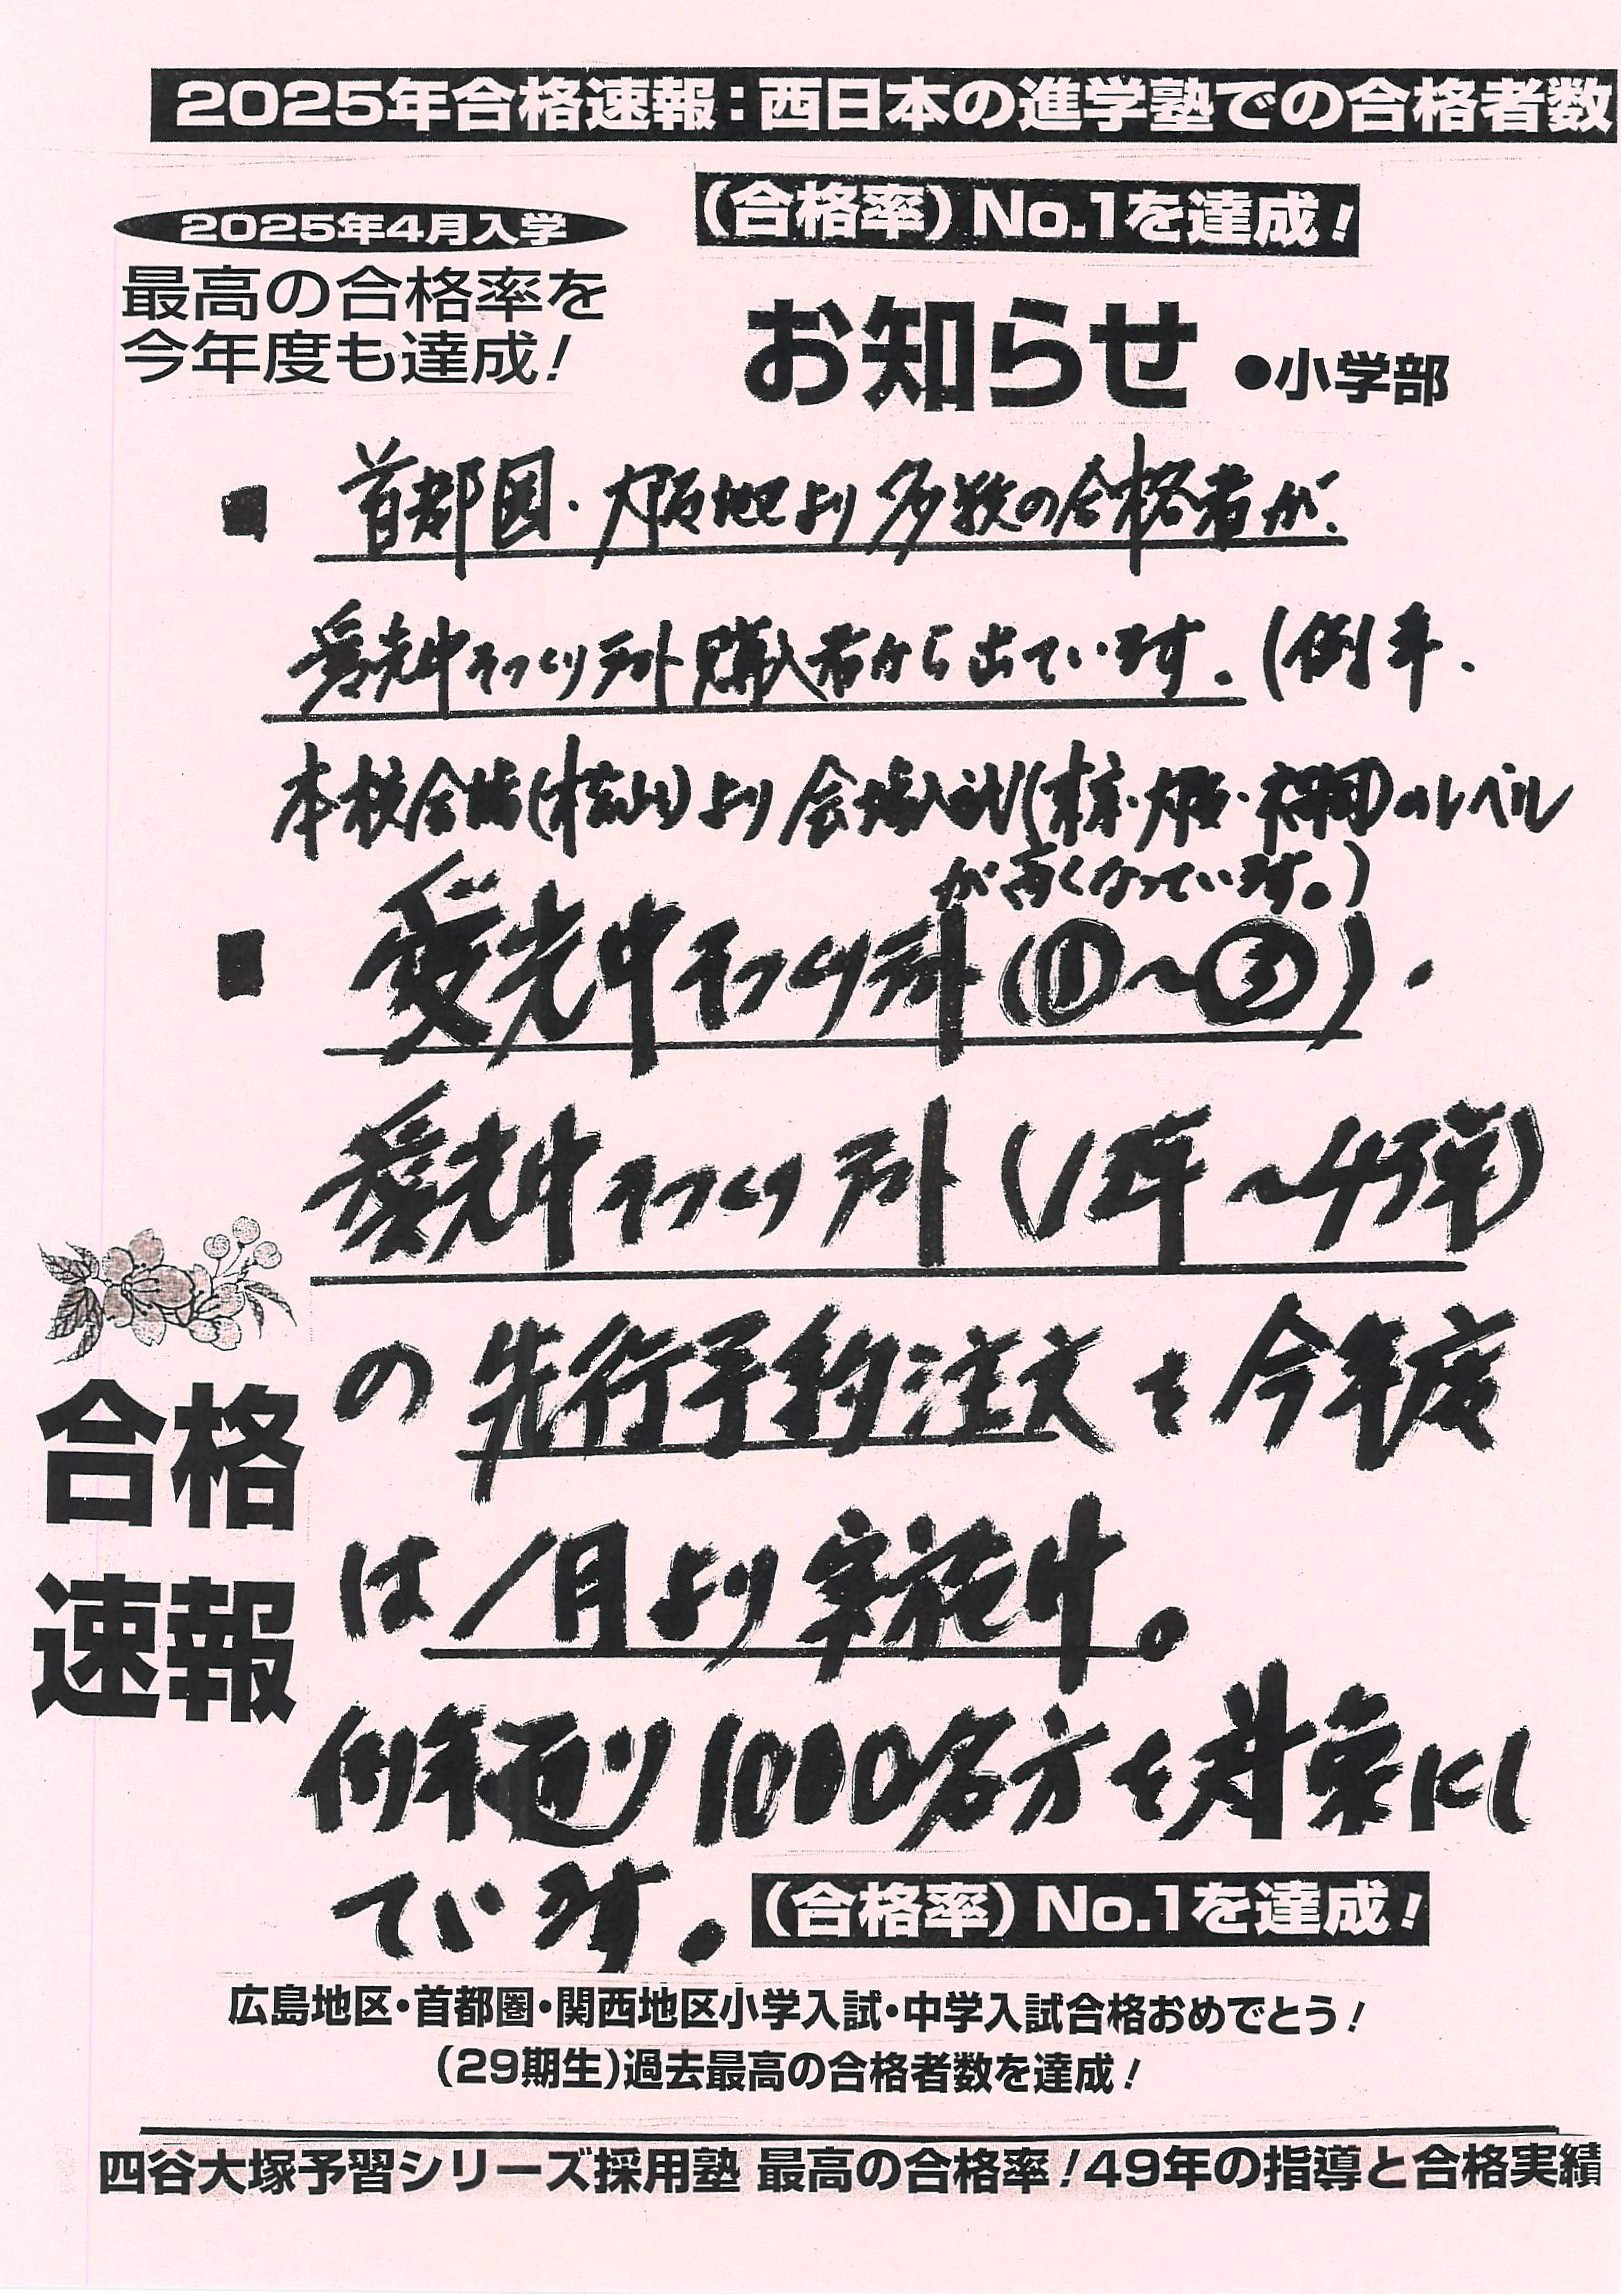 2025年合格速報：西日本の進学塾での合格者数
（合格率）No.1を達成！
2025年4月入学
最高の合格率を
今年度も達成！
お知らせ ●小学部
■ 首都圏・大阪地区より多数の合格者が、
愛光中そっくりテスト購入者から出ています。（例年、
本校会場（松山）より会場入試（東京・大阪・福岡）のレベル
が高くなっています。）
■ 愛光中そっくりテスト（①～③）・
愛光中そっくりテスト（1弾～45弾）
の先行予約注文を今年度
は1月より実施中。
例年通り1000名方を対象にし
ています。
（合格率）No.1を達成！
合格
速報
広島地区・首都圏・関西地区小学入試・中学入試合格おめでとう！
（29期生）過去最高の合格者数を達成！
四谷大塚予習シリーズ採用塾 最高の合格率！49年の指導と合格実績